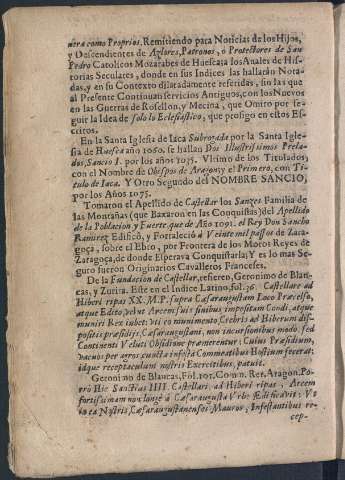 nera como Proprios. Remitiendo para Noticias de los Hijos,
y Descendientes de Azlores, Patronos, ò Protectores de San
Pedro Catolicos Mozarabes de Huesca; a los Anales de His-
torias Seculares, donde en sus Indices las hallaràn Nota-
das, y en su Contexto dilatadamente referidas, sin las que
al Presente Continuan servicios Antiguos, con los Nuevos
en las Guerras de Rosellon, y Mecina, que Omito por se-
guir la Idea de solo lo Eclesiastico, que prosigo en estos Es-
critos.
En la Santa Iglesia de Iaca Subrogada por la Santa Igle-
sia de Huesca año 1060. se hallan Dos Illustrissimos Prela-
dos, Sancio I. por los años 1075. Vltimo de los Titulados,
con el Nombre de Obispos de Aragon; y el Primero, con Ti-
tulo de Iaca. Y Otro Segundo del NOMBRE SANCIO,
por los Años 1075.
Tomaron el Apellido de Castellar los Sanzes Familia de
las Montañas (que Baxaron en las Conquistas) del Apellido
de la Poblacion, y Fuerte, que de Año 1091. el Rey Don Sancho
Ramirez Edificò, y Fortaleciò à Veinte mil passos de Zara-
goça, sobre el Ebro, por Frontera de los Moros Reyes de
Zaragoça, de donde Esperava Conquistarla; Y es lo mas Se-
guro fueron Originarios Cavalleros Franceses.
De la Fundacion de Castellar, refiero, Geronimo de Blan-
cas, y Zurita. Este en el Indice Latino, fol. 26. Castellare ad
Hiberi ripas XX. M. P. supra Cæsaraugustam Loco Præcelso,
atque Edito, velut Arcem suis finibus impositam Condi, atque
muniri Rex iubet: vti eo munimento, Crebris ad Hiberum dis-
positis præsidijs, Cæsaraugustani, non incursionibus modo, sed
Continenti Velut Obsidione præmerentur: Cuius Præsidium,
vacuos per agros, cuncta infesta Commeatibus Hostium fecerat;
idque receptaculum nostris Exercitibus, patuit.
Geronimo de Blancas, Fol. 105. Comm. Rer. Aragon. Po-
rrò Hic Sanctius IIII. Castellari, ad Hiberi ripas, Arcem
fortissimam non longè à Cæsaraugusta Vrbe Ædificavit: Vn
to ea Nostris, Cæsaraugustanenses Mauros, Infestantibus re-
cep-